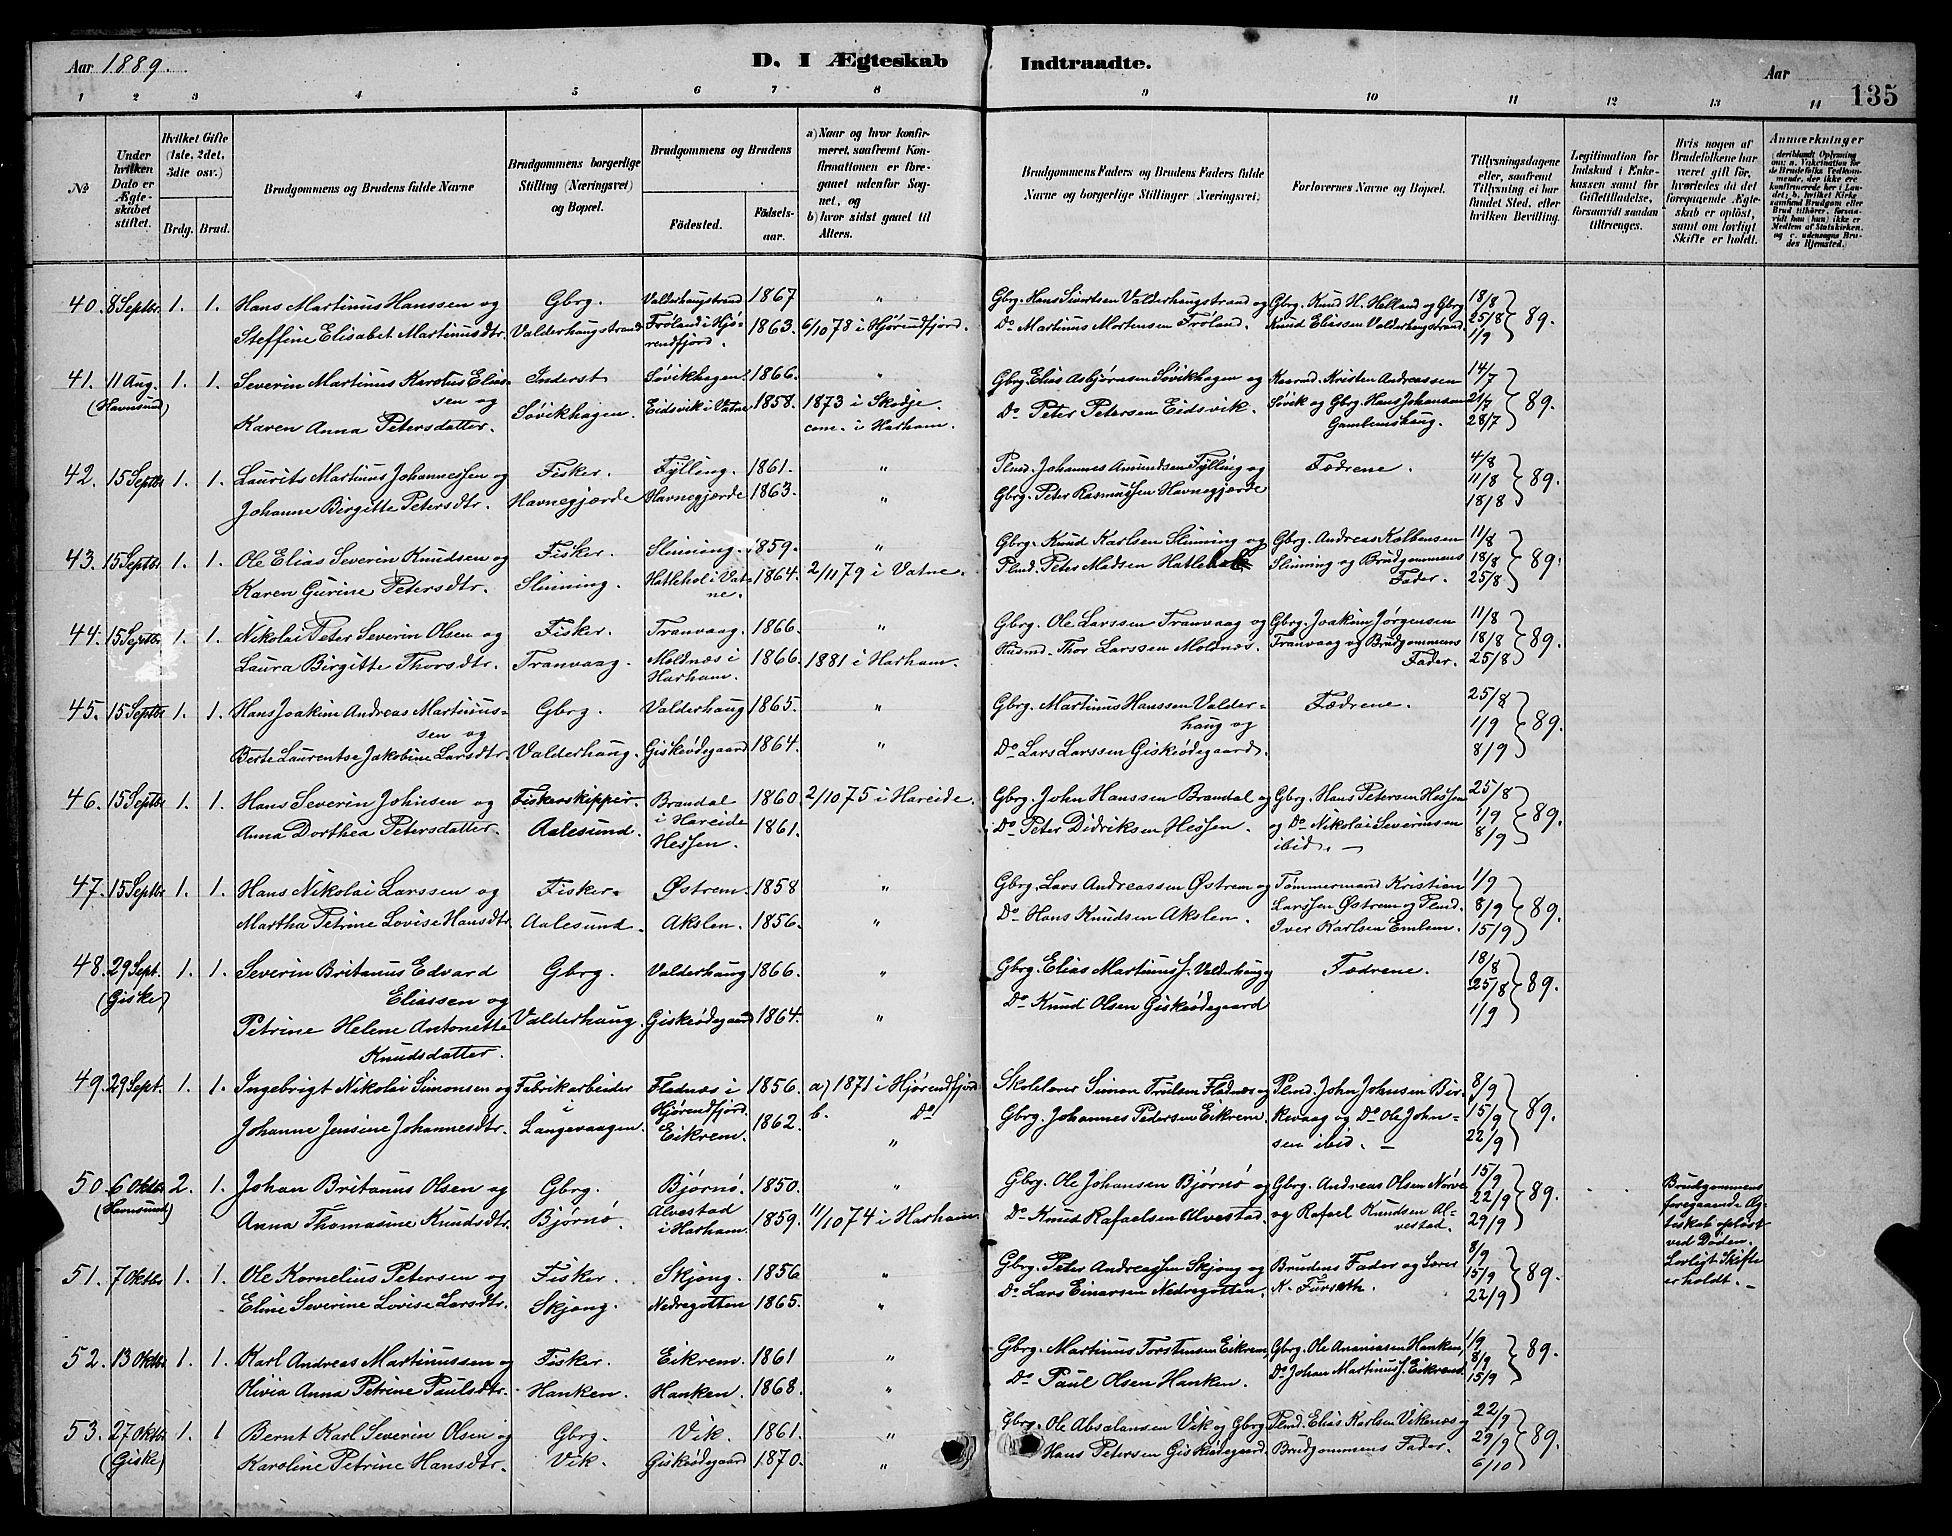 Aar 1889.
D. I Ægteskab Indtraadte.
Aar
135
1 2 3 4 5 6 7 8 9 10 11 12 13 14
No
Under hvilken Dato er Ægteskabet stiftet.
Hvilket Gifte (1ste, 2det, 3die osv.)
Brdg. Brud.
Brudgommens og Brudens fulde Navne
Brudgommens borgerlige Stilling (Næringsvei) og Bopæl.
Brudgommens og Brudens
Fødested. Fødselsaar.
a) Naar og hvor konfirmeret, saafremt Konfirmationen er foregaaet udenfor Sognet, og
b) hvor sidst gaaet til Alters.
Brudgommens Faders og Brudens Faders fulde Navne og borgerlige Stillinger (Næringsvei).
Forlovernes Navne og Bopæl.
Tillysningsdagene eller, saafremt Tillysning ei har fundet Sted, efter hvilken Bevilling.
Legitimation for Indskud i Enkekassen samt for Giftetilladelse, forsaavidt saadan tiltrænges.
Hvis nogen af Brudefolkene har været gift før, hvorledes da det foregaaende Ægteskab er opløst, samt om lovligt Skifte er holdt.
Anmærkninger
40. 8 Septbr. 1. 1. Hans Martinus Hanssen og Gbrg. Valderhaugstrand 1867 " Gbrg. Hans Siurtsen Valderhaugstrand og Gbrg. Knud H. Helland og Gbrg. 18/8
Steffine Elisabet Martinusdtr. Valderhaugstrand Frøland i Hjørendfjord. 1863. 6/10 78 i Hjørendfjord. Do Martinus Mortensen Frøland. Knud Eliassen Valderhaugstrand. 25/8 1/9 89.
41. 11 Aug. (Havnsund) 1. 1. Severin Martinus Karolus Eliassen og Inderst Søvikhagen. 1866. " Gbrg. Elias Asbjørnsen Søvikhagen og Kaarmd. Kristen Andreassen 14/7
Karen Anna Petersdatter. Søvikhagen. Eidsvik i Vatne 1858. 1873 i Skodje. com. i Harham. Do Peter Petersen Eidsvik. Søvik og Gbrg. Hans Johansen Gamlemshaug. 21/7 28/7 89.
42. 15 Septbr 1. 1. Laurits Martinus Johannessen og Fisker. Fylling. 1861. " Plmd. Johannes Amundsen Fylling og Fædrene. 4/8
Johanne Birgitte Petersdtr. Havnegjærde Havnegjærde 1863. " Gbrg. Peter Rasmussen Havnegjærde 11/8 18/8 89.
43. 15 Septbr 1. 1. Ole Elias Severin Knudsen og Fisker. Slinning. 1859. " Gbrg. Knud Karlsen Slinning og Gbrg. Andreas Kolbensen 11/8
Karen Gurine Petersdtr. Slinning. Hatlehol i Vatne. 1864. 2/11 79 i Vatne. Plmd. Peter Madsen Hatlehol Slinning og Brudgommens Fader. 18/8 25/8 89.
44. 15 Septbr 1. 1. Nikolai Peter Severin Olsen og Fisker. Tranvaag. 1866. " Gbrg. Ole Larssen Tranvaag og Gbrg. Joakim Jørgensen 11/8
Laura Birgitte Thorsdtr. Tranvaag. Moldnæs i Harham. 1866. 1881 i Harham. Husmd. Thor Larssen Moldnæs. Tranvaag og Brudgommens Fader. 18/8 25/8 89.
45. 15 Septbr 1. 1. Hans Joakim Andreas Martinussen og Gbrg. Valderhaug 1865. " Gbrg. Martinus Hanssen Valderhaug og Fædrene. 25/8
Berte Laurentse Jakobine Larsdtr. Valderhaug. Giskeødegaard 1864. " Do Lars Larssen Giskeødegaard. 1/9 8/9 89.
46. 15 Septbr 1. 1. Hans Severin Johnsen og Fiskerskipper. Brandal i Hareide 1860. 2/10 75 i Hareide. Gbrg. John Hanssen Brandal og Gbrg. Hans Petersen Hessen 25/8
Anna Dorthea Petersdatter. Aalesund. Hessen. 1861. Do Peter Didriksen Hessen. og Do Nikolai Severinsen ibid. 1/9 8/9 89.
47. 15 Septbr 1. 1. Hans Nikolai Larssen og Fisker. Østrem. 1858 " Gbrg. Lars Andreassen Østrem og Tømmermand Kristian 1/9
Martha Petrine Lovise Hansdtr. Aalesund. Akslen. 1856. " Do Hans Knudsen Akslen. Larssen Østrem og Plmd. Iver Karlsen Emlem. 8/9 15/9 89.
48. 29 Sept. (Giske) 1. 1. Severin Britanus Edvard Eliassen og Gbrg. Valderhaug 1866. " Gbrg. Elias Martinus S. Valderhaug og Fædrene. 18/8
Petrine Helene Antonette Knudsdatter. Valderhaug. Giskeødegaard 1864. " Do Knud Olsen Giskeødegaard 25/8 1/9 89.
49. 29 Sept. 1. 1. Ingebrigt Nikolai Simonsen og Fabrikarbeider i Fladnæs i Hjørendfjord. 1856. a) 1871 i Hjørendfjord b. Do Skolelærer Simon Trulsen Fladnæs og Plmd. John Johnsen Bir- 8/9
Johanne Jensine Johannesdtr. Langevaagen. Eikrem. 1862. " Gbrg. Johannes Pedersen Eikrem. kevaag og Do Ole Johnsen ibid. 15/9 22/9 89.
50. 6 Oktbr (Havnsund) 2. 1. Johan Britanus Olsen og Gbrg. Bjørnø. 1850. " Gbrg. Ole Johansen Bjørnø og Gbrg. Andreas Olsen Nørve 15/9
Anna Thomasine Knudsdtr. Bjørnø. Alvestad i Harham. 1859. 11/10 74 i Harham. Do Knud Rafaelsen Alvestad. og Rafael Knudsen Alvestad. 22/9 29/9 89.
Brudgommens foregaaende Ægteskab opløst ved Døden. Lovligt Skifte er holdt.
51. 7 Oktbr 1. 1. Ole Kornelius Petersen og Fisker. Skjong. 1856 " Gbrg. Peter Andreassen Skjong og Brudens Fader og Lærer 8/9
Eline Severine Lovise Larsdtr. Skjong. Nedregotten 1865. " Do Lars Einarsen Nedregotten. K. Furseth. 15/9 22/9 89.
52. 13 Oktbr 1. 1. Karl Andreas Martinussen og Fisker. Eikrem. 1861 " Gbrg. Martinus Torstensen Eikrem, Gbrg. Ole Ananiasen Hanken, 1/9
Olivia Anna Petrine Paulsdtr. Hanken. Hanken. 1868. " Do Paul Olsen Hanken. Do Johan Martinus J. Eikrem. 8/9 15/9 89.
53. 27 Oktbr (Giske) 1. 1 Bernt Karl Severin Olsen og Gbrg. Vik. 1861. " Gbrg. Ole Absalonsen Vik og Gbrg. Plmd. Elias Karlsen Vikenæs og 22/9
Karoline Petrine Hansdtr. Vik. Giskeødegaard 1870. " Hans Petersen Giskeødegaard Brudgommens Fader. 29/9 6/10 89.